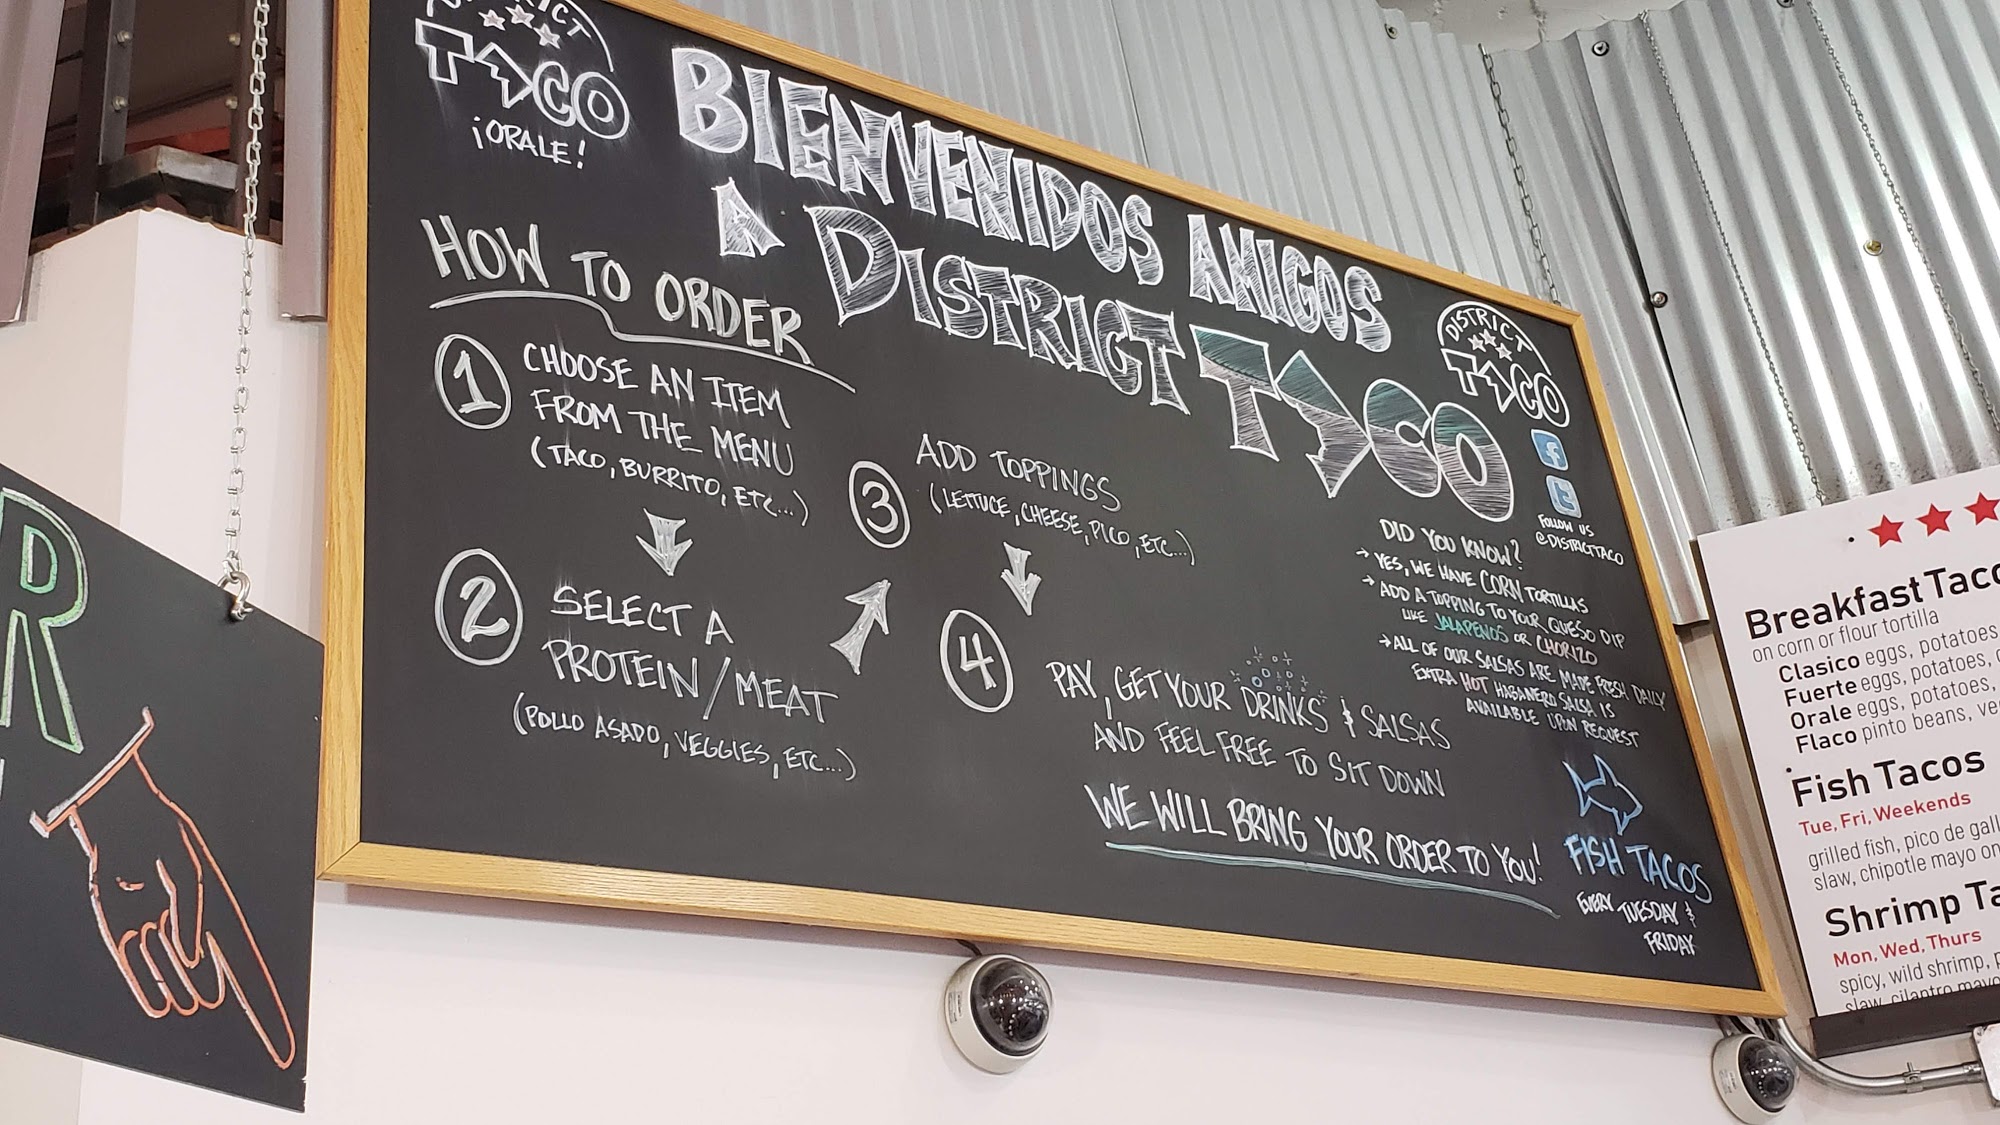 DISTRICT
TACO
¡ORALE!
BIENVENIDOS AMIGOS
A DISTRICT TACO
HOW TO ORDER
1 CHOOSE AN ITEM
FROM THE MENU
(TACO, BURRITO, ETC...)
2 SELECT A
PROTEIN/MEAT
(POLLO ASADO, VEGGIES, ETC...)
3 ADD TOPPINGS
(LETTUCE, CHEESE, PICO, ETC...)
4 PAY, GET YOUR DRINKS & SALSAS
AND FEEL FREE TO SIT DOWN
WE WILL BRING YOUR ORDER TO YOU!
DISTRICT
TACO
f
t
FOLLOW US
@DISTRICTTACO
DID YOU KNOW?
→ YES, WE HAVE CORN TORTILLAS
→ ADD A TOPPING TO YOUR QUESO DIP
LIKE JALAPENOS OR CHORIZO
→ ALL OF OUR SALSAS ARE MADE FRESH DAILY
EXTRA HOT HABANERO SALSA IS
AVAILABLE UPON REQUEST
FISH TACOS
EVERY TUESDAY &
FRIDAY
R
Breakfast
on corn or flour tortilla
Clasico eggs, potatoes
Fuerte eggs, potatoes,
Orale eggs, potatoes,
Flaco pinto beans,
Fish Tacos
Tue, Fri, Weekends
grilled fish, pico de
slaw, chipotle mayo
Shrimp
Mon, Wed, Thurs
spicy, wild shrimp,
slaw, cilantro mayo